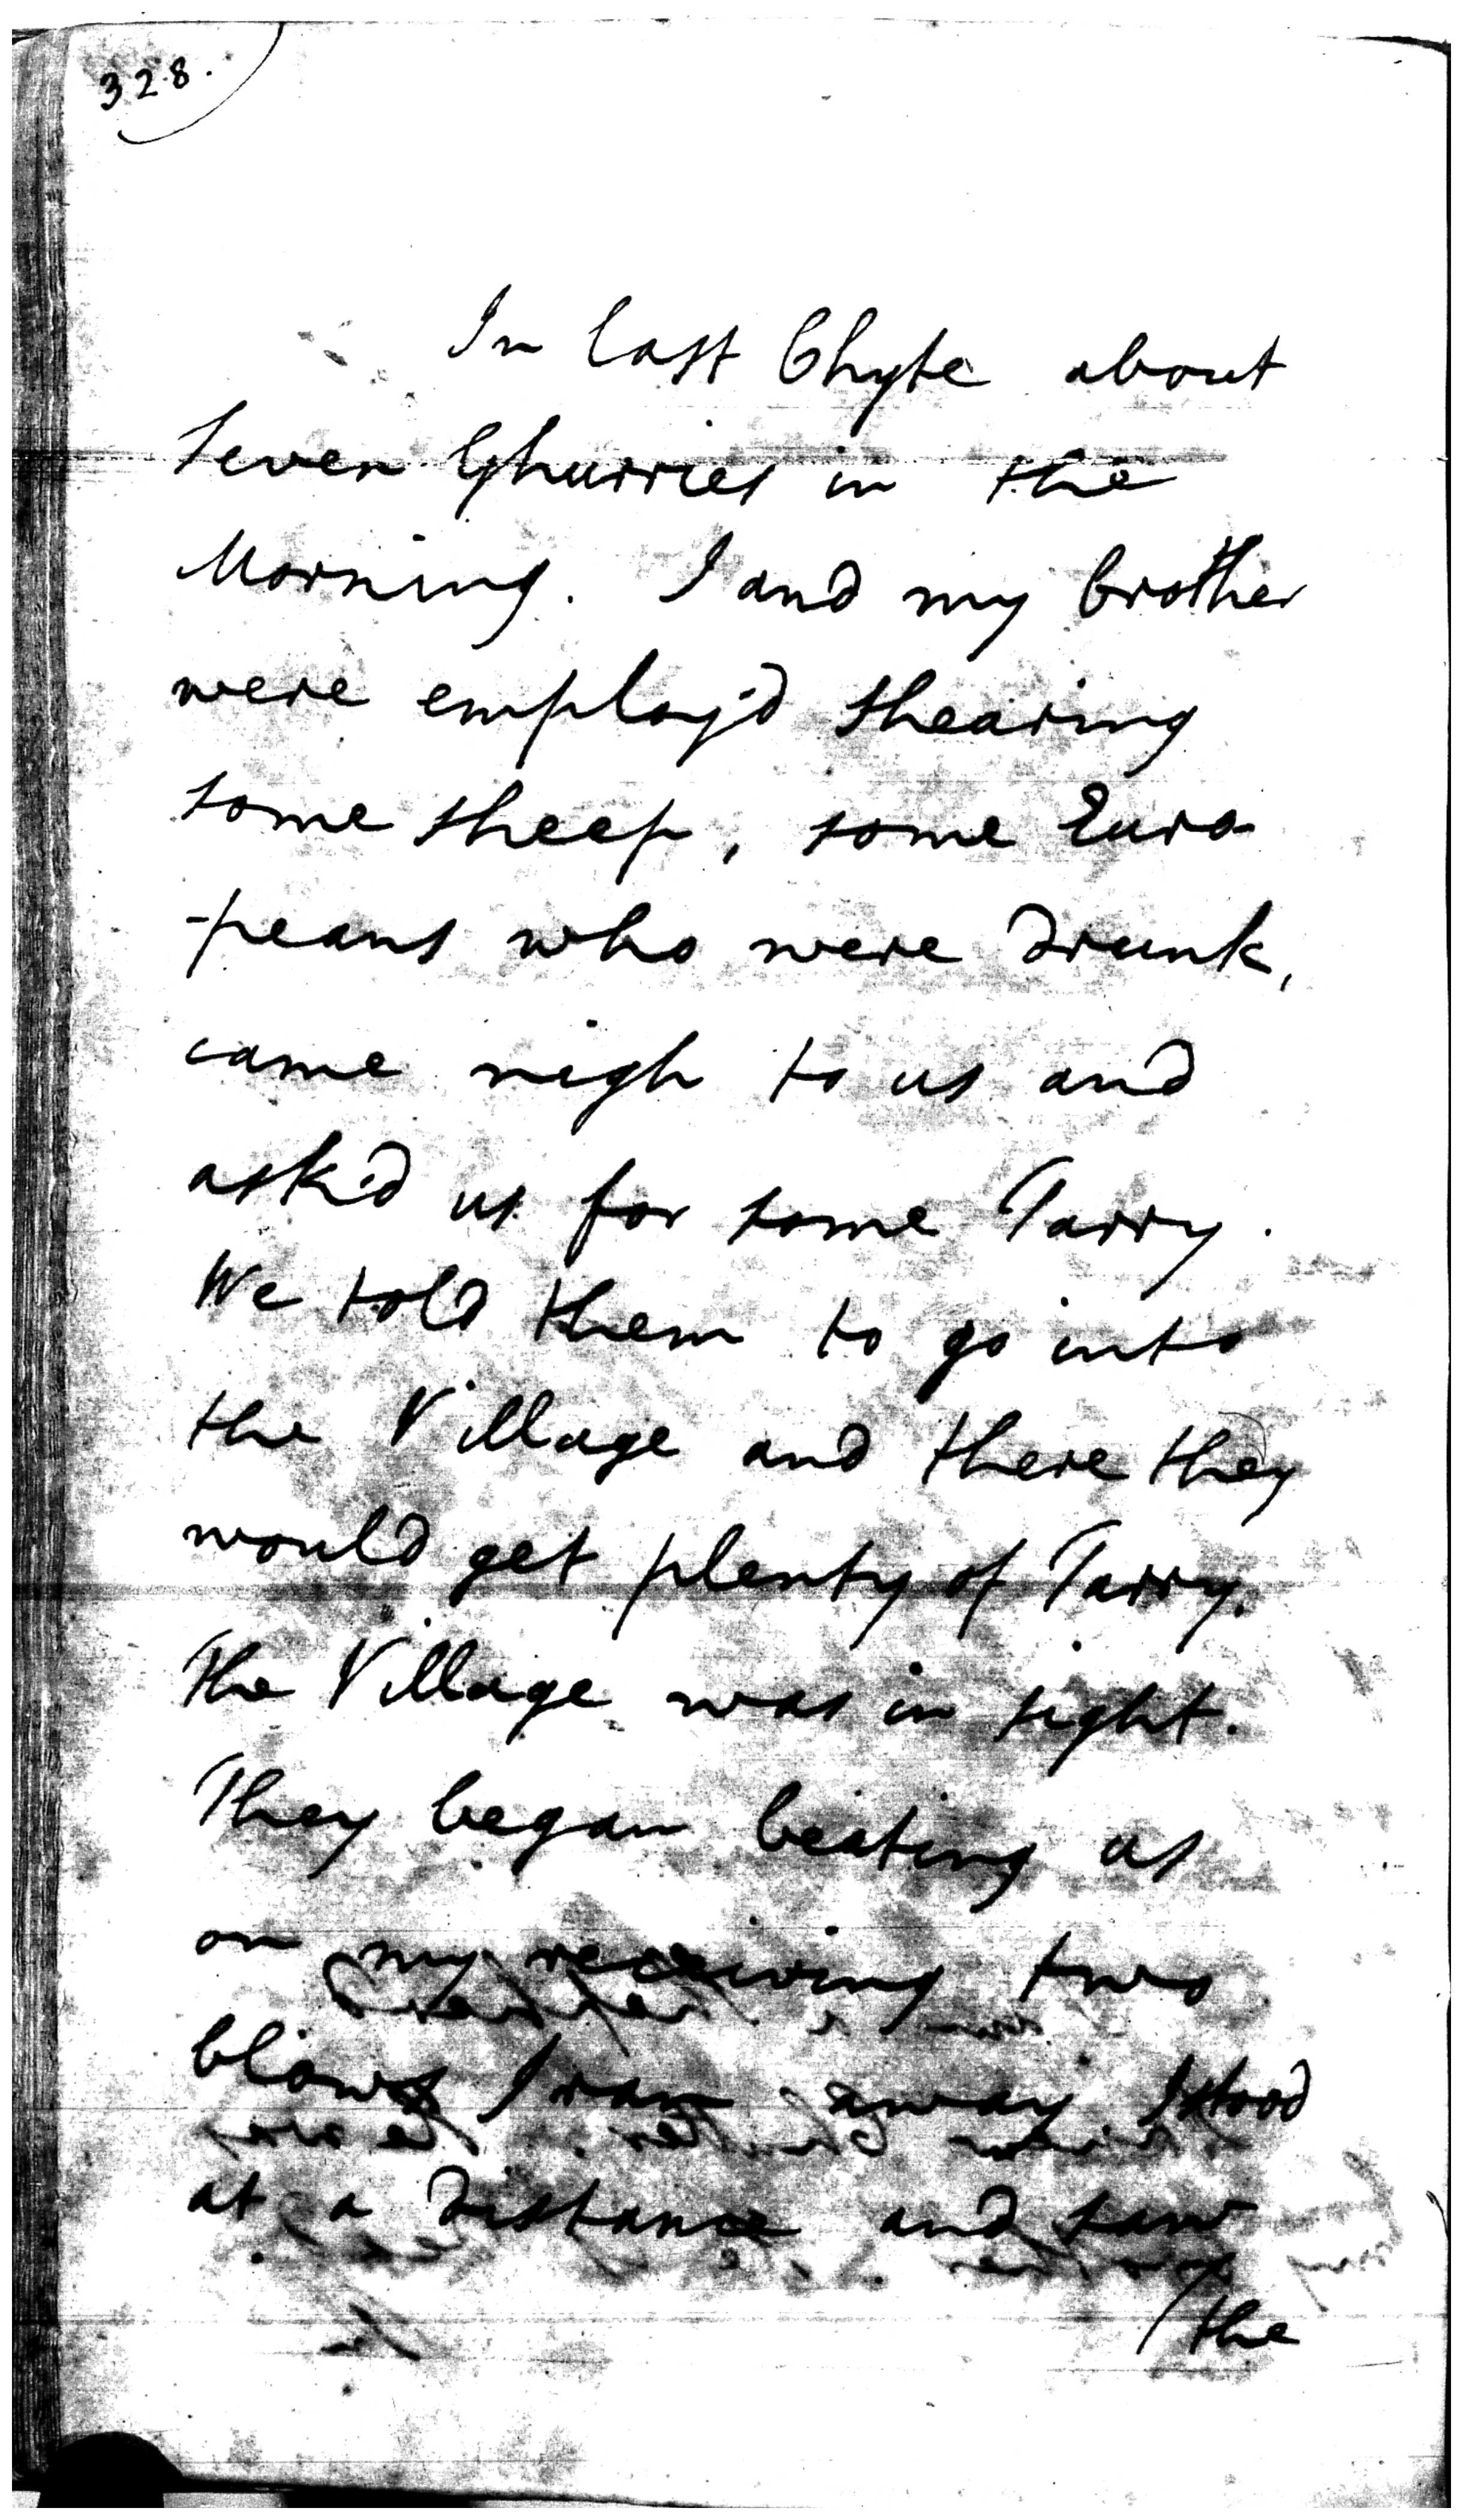 328.
In last Chyte about
seven Ghurries in the
Morning. I and my brother
were employ'd shearing
some sheep, some Euro
-peans who were drunk,
came nigh to us and
ask'd us for some Tarry.
We told them to go into
the Village and there they
would get plenty of Tarry.
The Village was in sight.
They began beating us
on my receiving two
blows I ran away. I stood
at a distance and saw
/the